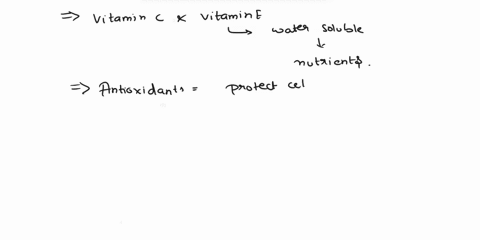 ⇒ Vitamin C & Vitamin E
↳ water soluble
↓
nutrients.
⇒ Antioxidants = protect cel